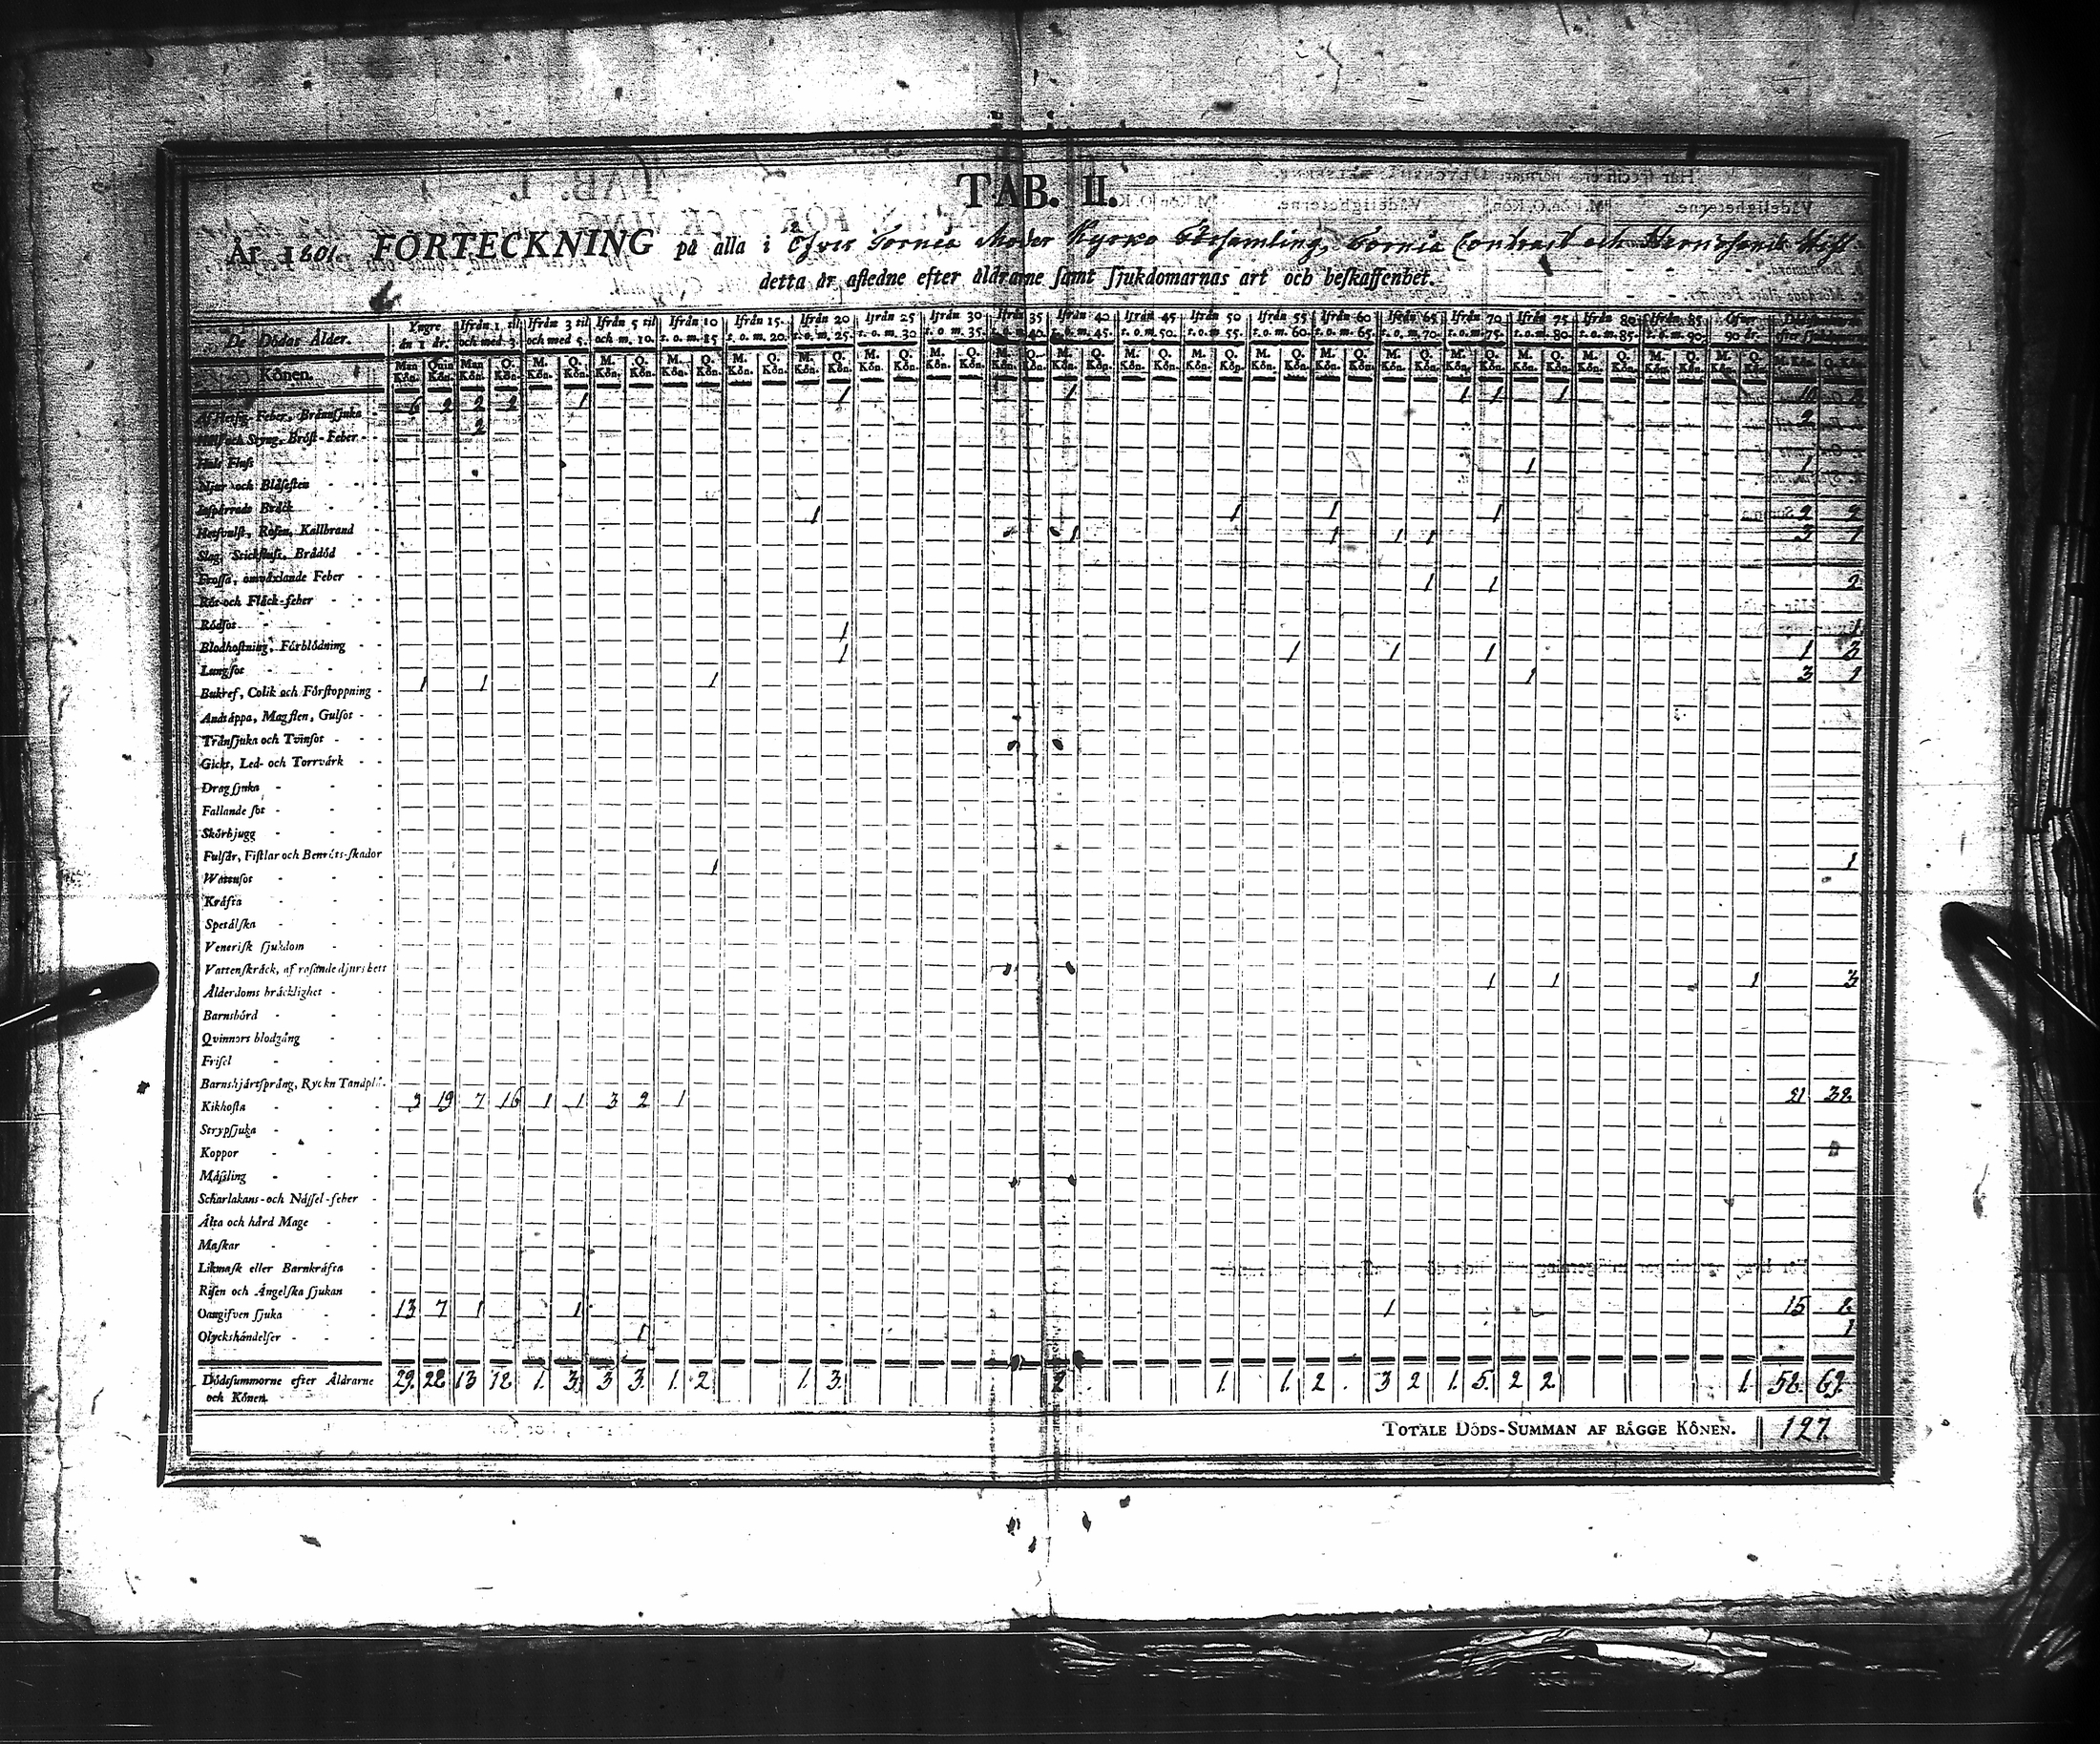 TAB. II.
År 1801. FÖRTECKNING på alla i Öfver Tornea Moder Kyrko Församling, Tornea Contract och Hernösands Stift
detta år afledne efter åldrarne samt sjukdomarnas art och beskaffenhet.
De Dödas Ålder. Yngre än 1 år. Ifrån 1 til och med 3. Ifrån 3 til och med 5. Ifrån 5 til och m. 10. Ifrån 10 t. o. m. 15 Ifrån 15 t. o. m. 20. Ifrån 20 t. o. m. 25. Ifrån 25 t. o. m. 30 Ifrån 30 t. o. m. 35. Ifrån 35 t. o. m. 40. Ifrån 40 t. o. m. 45. Ifrån 45 t. o. m. 50. Ifrån 50 t. o. m. 55. Ifrån 55 t. o. m. 60. Ifrån 60 t. o. m. 65. Ifrån 65 t. o. m. 70. Ifrån 70 t. o. m. 75. Ifrån 75 t. o. m. 80 Ifrån 80 t. o. m. 85. Ifrån 85 t. o. m. 90. Öfver 90 år.
Könen. Man Kön. Quin Kön. Man Kön. Q. Kön. M. Kön. Q. Kön. M. Kön. Q. Kön. M. Kön. Q. Kön. M. Kön. Q. Kön. M. Kön. Q. Kön. M. Kön. Q. Kön. M. Kön. Q. Kön. M. Kön. Q. Kön. M. Kön. Q. Kön. M. Kön. Q. Kön. M. Kön. Q. Kön. M. Kön. Q. Kön. M. Kön. Q. Kön. M. Kön. Q. Kön. M. Kön. Q. Kön. M. Kön. Q. Kön. M. Kön. Q. Kön. M. Kön. Q. Kön. M. Kön. Q. Kön. M. Kön. Q. Kön.
Af Hetsig Feber, Brännsjuka 6 2 2 2 1 1 1 1 1 1 10
Håll och Styng, Bröst-Feber 2 2
Hals Fluss
Njur och Blåsesten 1 1
Inspärrade Bråck
Hetsvulst, Rosen, Kallbrand 1 1 1 1 2 2
Slag, Stickfluss, Brådöd 1 1 1 1 3 1
Frossa, omväxlande Feber
Röt och Fläck-feber 1 1 2
Rödsot
Blodhostning, Förblödning 1 1
Lungsot 1 1 1 1 1 3
Bukref, Colik och Förstoppning 1 1 1 1 3 1
Andtäppa, Magsten, Gulsot
Trånsjuka och Tvinsot
Gickt, Led- och Torrvärk
Dragsjuka
Fallande sot
Skörbjugg
Fulsår, Fistlar och Benröts-skador
Wattusot 1 1
Kräfta
Spetälska
Venerisk sjukdom
Vattenskräck, af rasande djurs bett
Ålderdoms bräcklighet 1 1 1 3
Barnsbörd
Qvinnors blodgång
Frisel
Barnshjärtsprång, Ryckn Tandplå.
Kikhosta 9 19 7 16 1 1 3 2 1 21 38
Strypsjuka
Koppor
Mässling
Scharlakans- och Nässel-feber
Älta och hård Mage
Maskar
Likmask eller Barnkräfta
Risen och Ängelska sjukan
Oangifven sjuka 13 7 1 1 1 15
Olyckshändelser 1 1
Dödssummorne efter Åldrarne och Könen. 29. 28 13 18 1. 3. 3 3. 1. 2. 1. 3. 2 1. 1. 2. 3 2 1. 5. 2 2. 1. 58. 69.
TOTALE DÖDS-SUMMAN AF BÄGGE KÖNEN. 127.